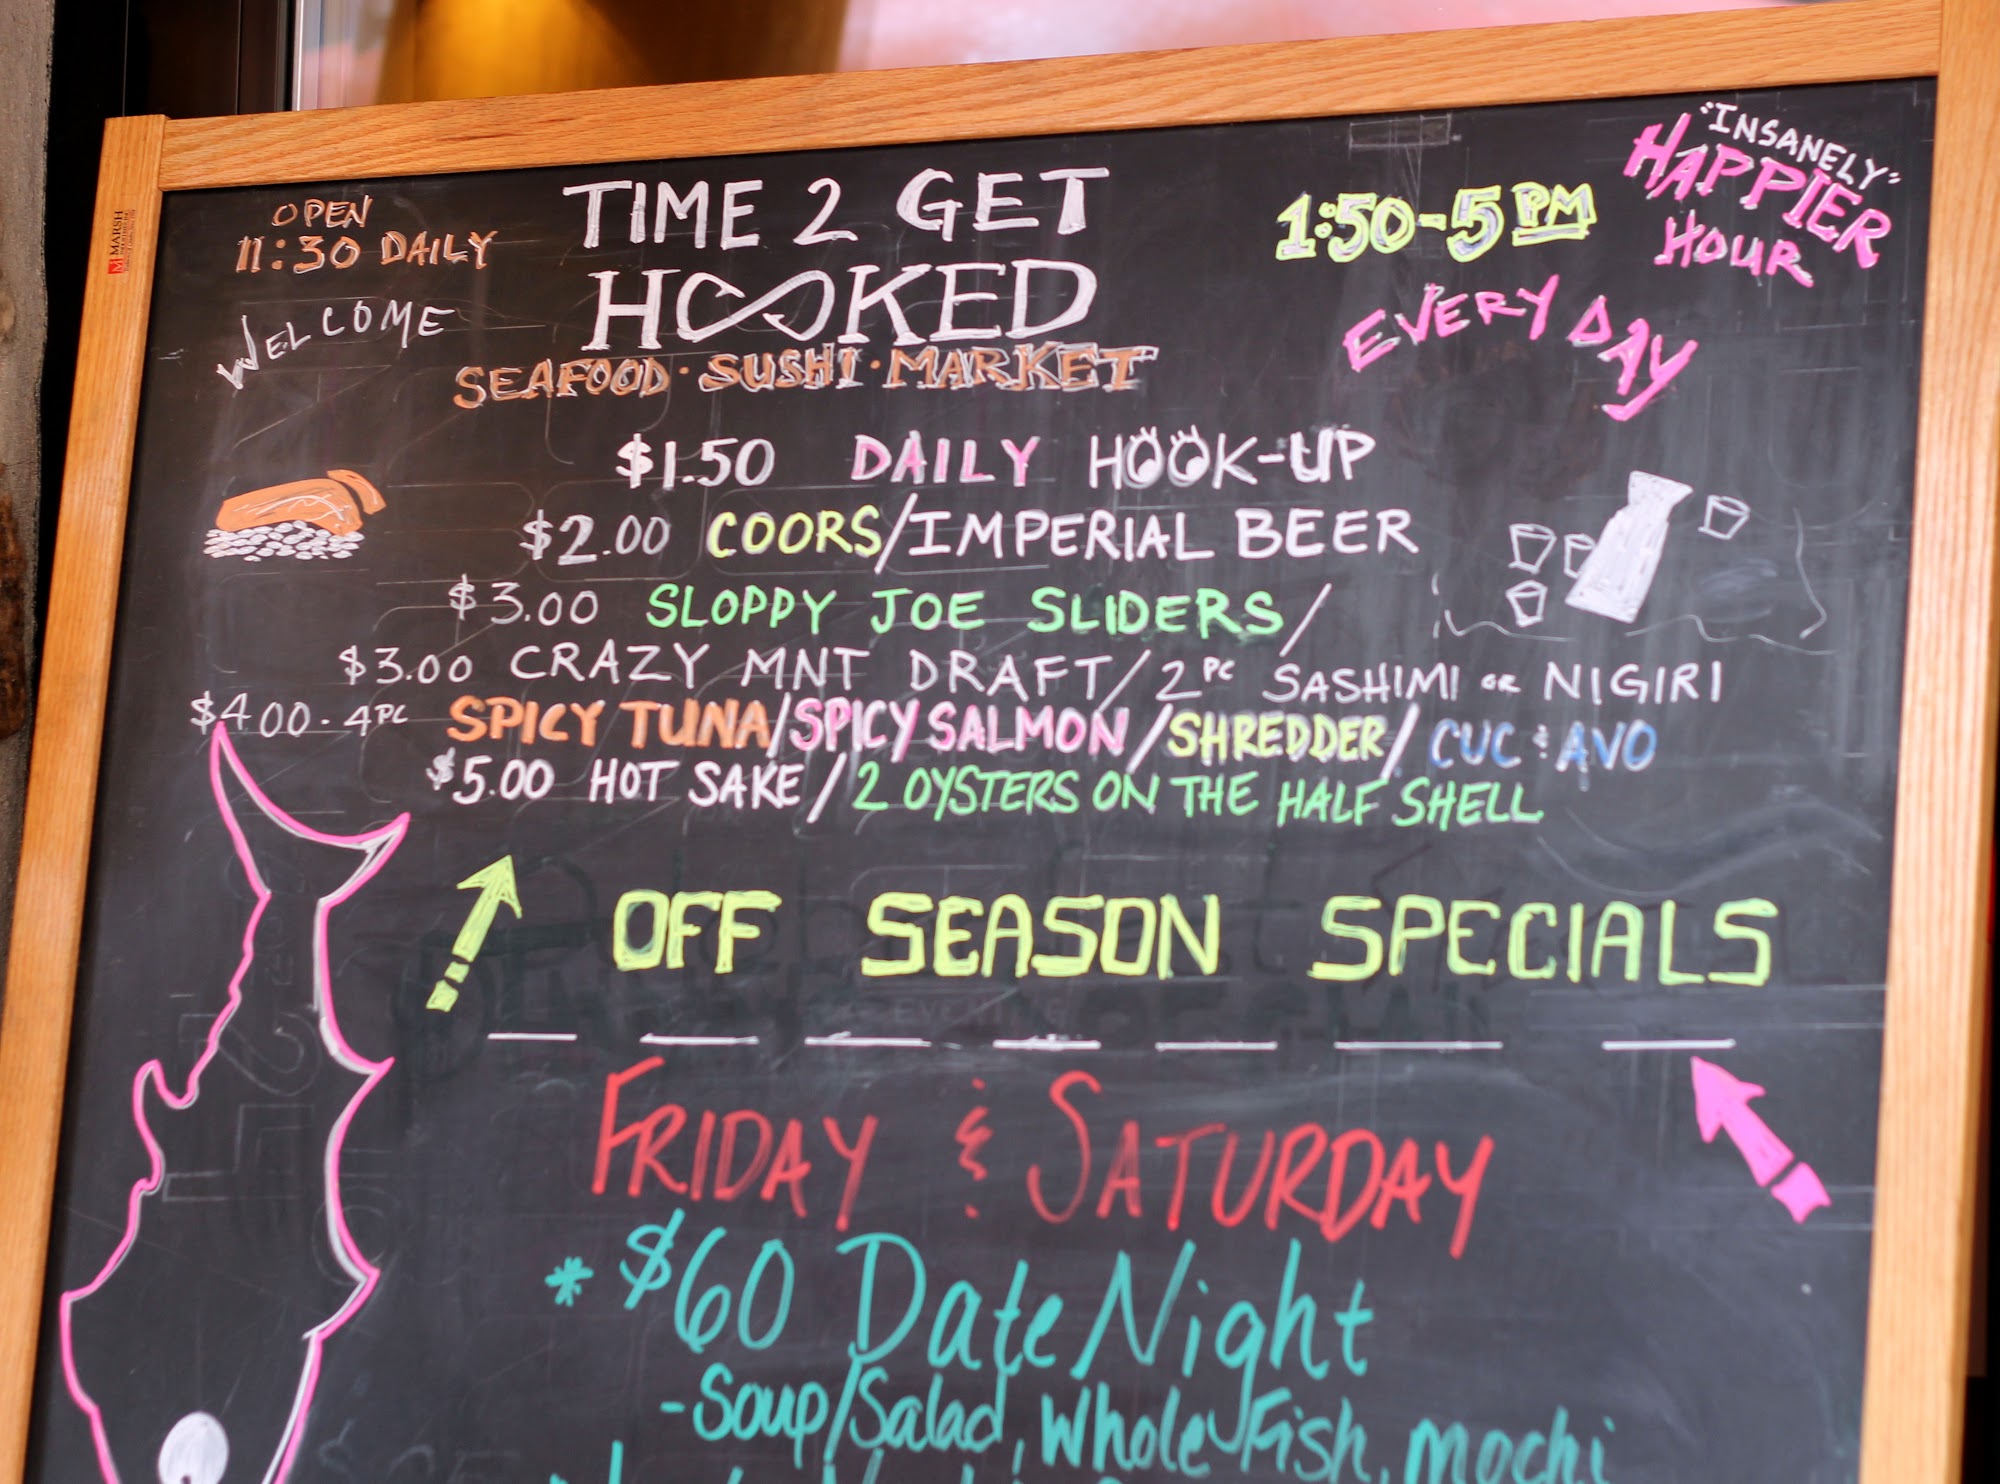 OPEN
11:30 DAILY
WELCOME
TIME 2 GET
HOOKED
SEAFOOD · SUSHI · MARKET
1:50-5PM
"INSANELY"
HAPPIER
HOUR
EVERY DAY
$1.50 DAILY HOOK-UP
$2.00 COORS/IMPERIAL BEER
$3.00 SLOPPY JOE SLIDERS/
$3.00 CRAZY MNT DRAFT/2PC SASHIMI OR NIGIRI
$4.00 - 4PC SPICY TUNA/SPICY SALMON/SHREDDER/CUC & AVO
$5.00 HOT SAKE/2 OYSTERS ON THE HALF SHELL
OFF SEASON SPECIALS
FRIDAY & SATURDAY
* $60 Date Night
- Soup/Salad, Whole Fish, Mochi
MARSH